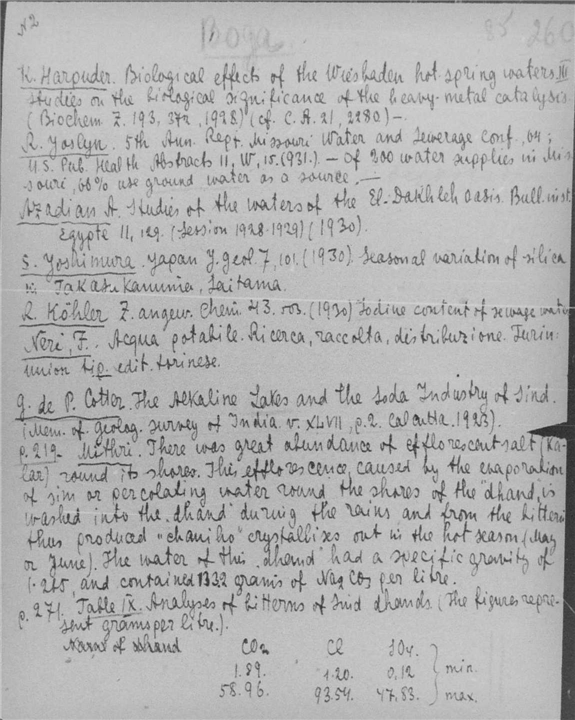 N2
Вода 85 260
K. Harpuder. Biological effects of the Wiesbaden hot spring waters. III
Studies on the biological significance of the heavy-metal catalysis
(Biochem Z. 193, 372, 1928) (cf. C. A. 21, 2280) —
R. Joslyn. 5th Ann. Rept. Missouri Water and Sewerage Conf., 64;
U.S. Pub. Health Abstracts 11, W, 15. (1931.) — Of 200 water supplies in Mis-
souri, 66% use ground water as a source. —
Azadian A. Studies of the waters of the El-Dakhleh oasis. Bull. inst.
Egypte 11, 129. (Session 1928-1929) (1930).
S. Yoshimura. Japan J. geol. 7, 101. (1930). Seasonal variation of silica
in Takasukanuma, Saitama.
R. Köhler Z. angew. Chem. 43. (1930) Iodine content of sewage water
Neri, F. Acqua potabile. Ricerca, raccolta, distribuzione. Turin:
union tip. edit. torinese.
G. de P. Cotter. The Alkaline Lakes and the Soda Industry of Sind.
(Mem. of geolog. survey of India v. XLVII, p. 2. Calcutta. 1923).
p. 219. Mithri. There was great abundance of efflorescent salt (Ka-
lar) round its shores. This efflorescence, caused by the evaporation
of sim or percolating water round the shores of the "dhand", is
washed into the "dhand" during the rains and from the bittern
thus produced "chaniho" crystallises out in the hot season (May
or June). The water of this "dhand" had a specific gravity of
1.265 and contained 133.2 grams of Na2CO3 per litre.
p. 271. Table IX. Analyses of bitterns of Sind dhands. (The figures repre-
sent grams per litre.).
Name of dhand CO2 Cl SO4.
1.89. 1.20. 0,12 } min.
58.96. 93.54. 47.83. } max.